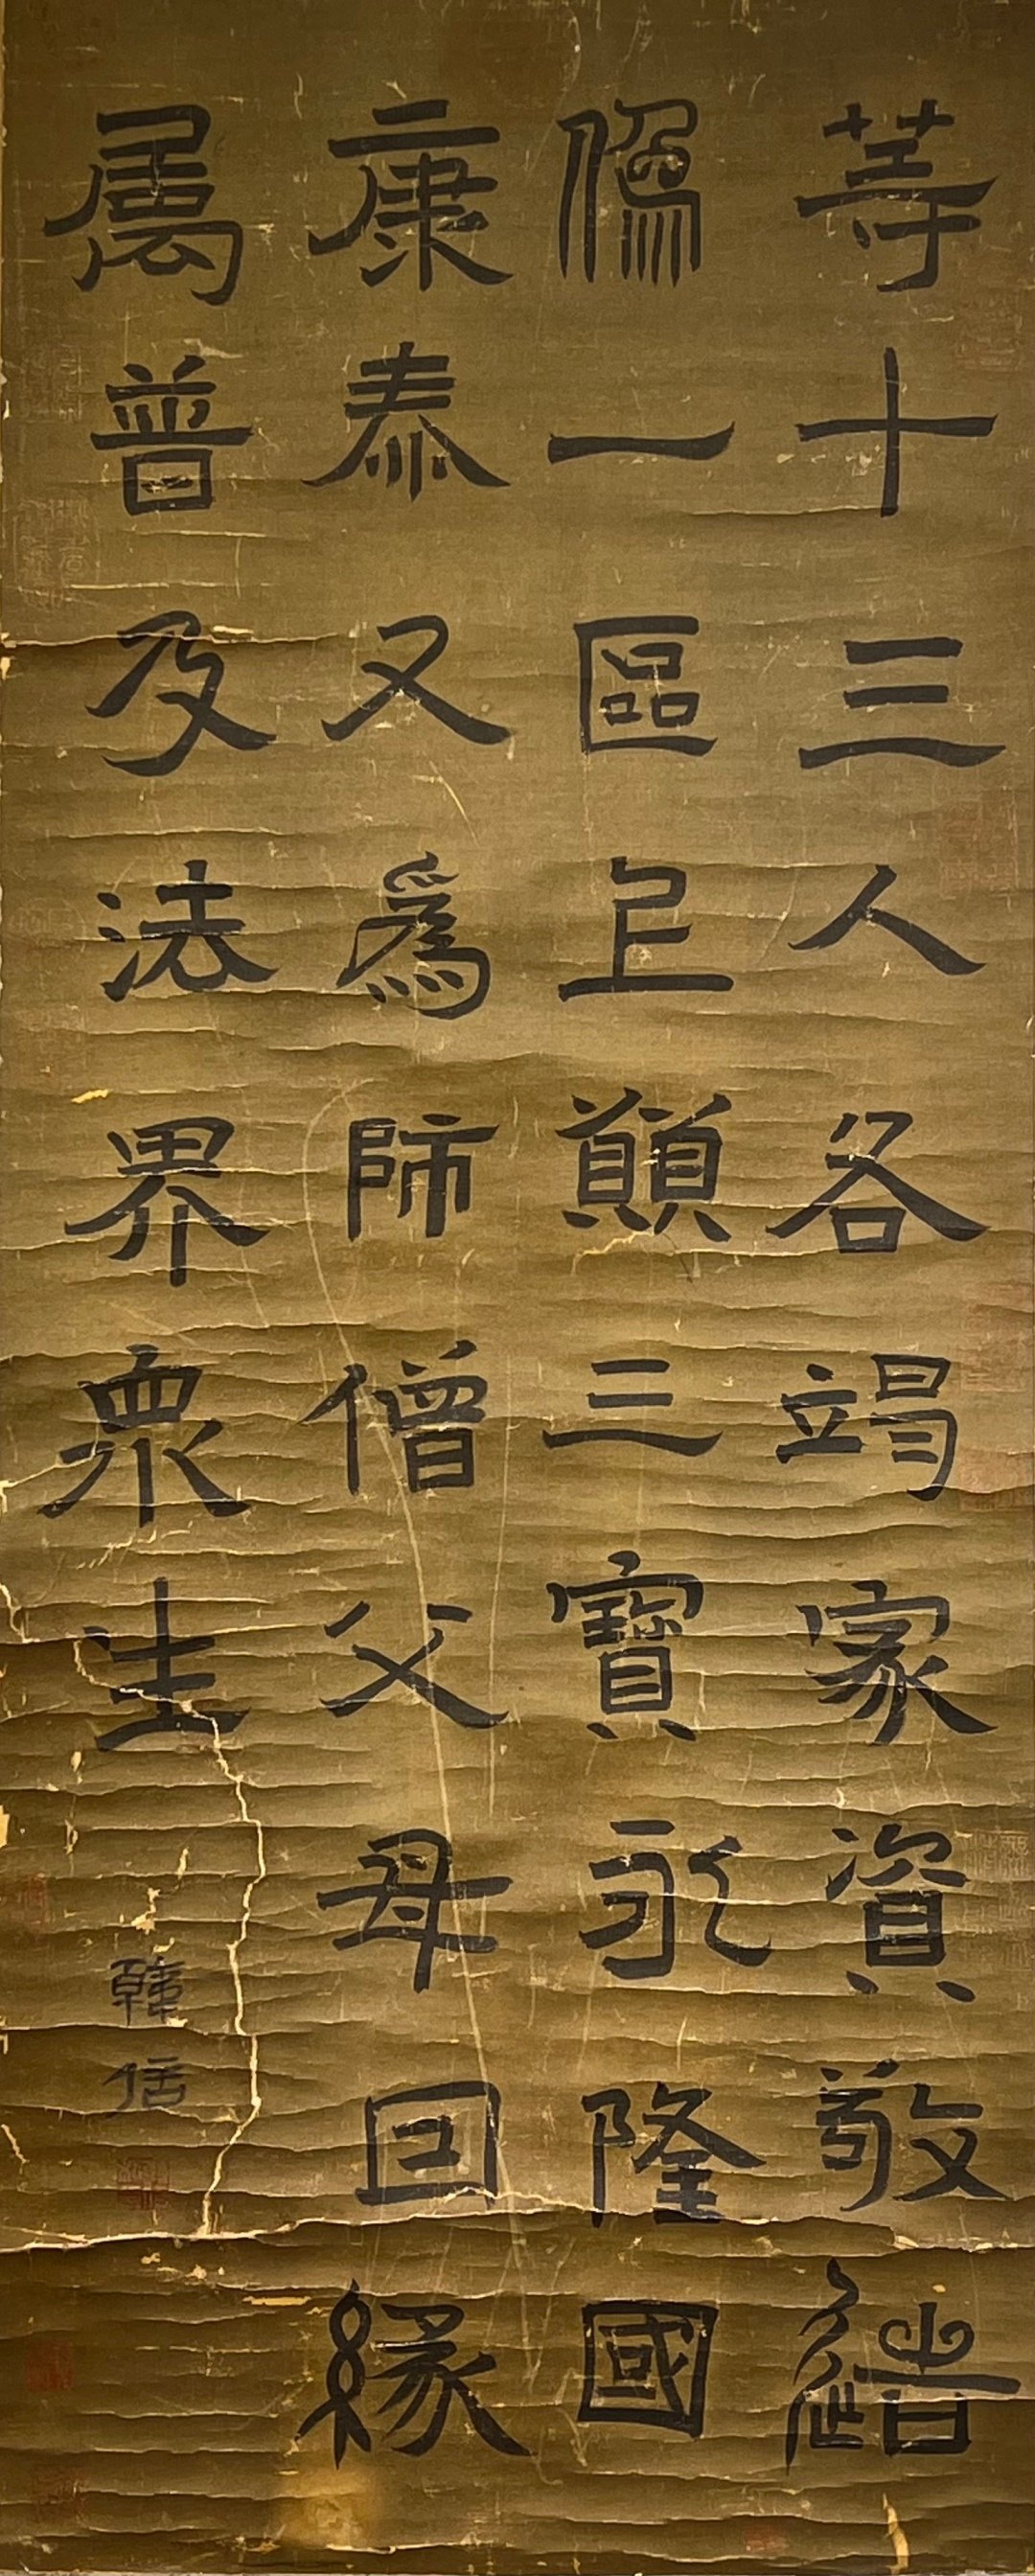 等十三人各竭家資敬造
像一區上願三寶永隆國
康泰又爲師僧父母因緣
属普及法界衆生
韓信